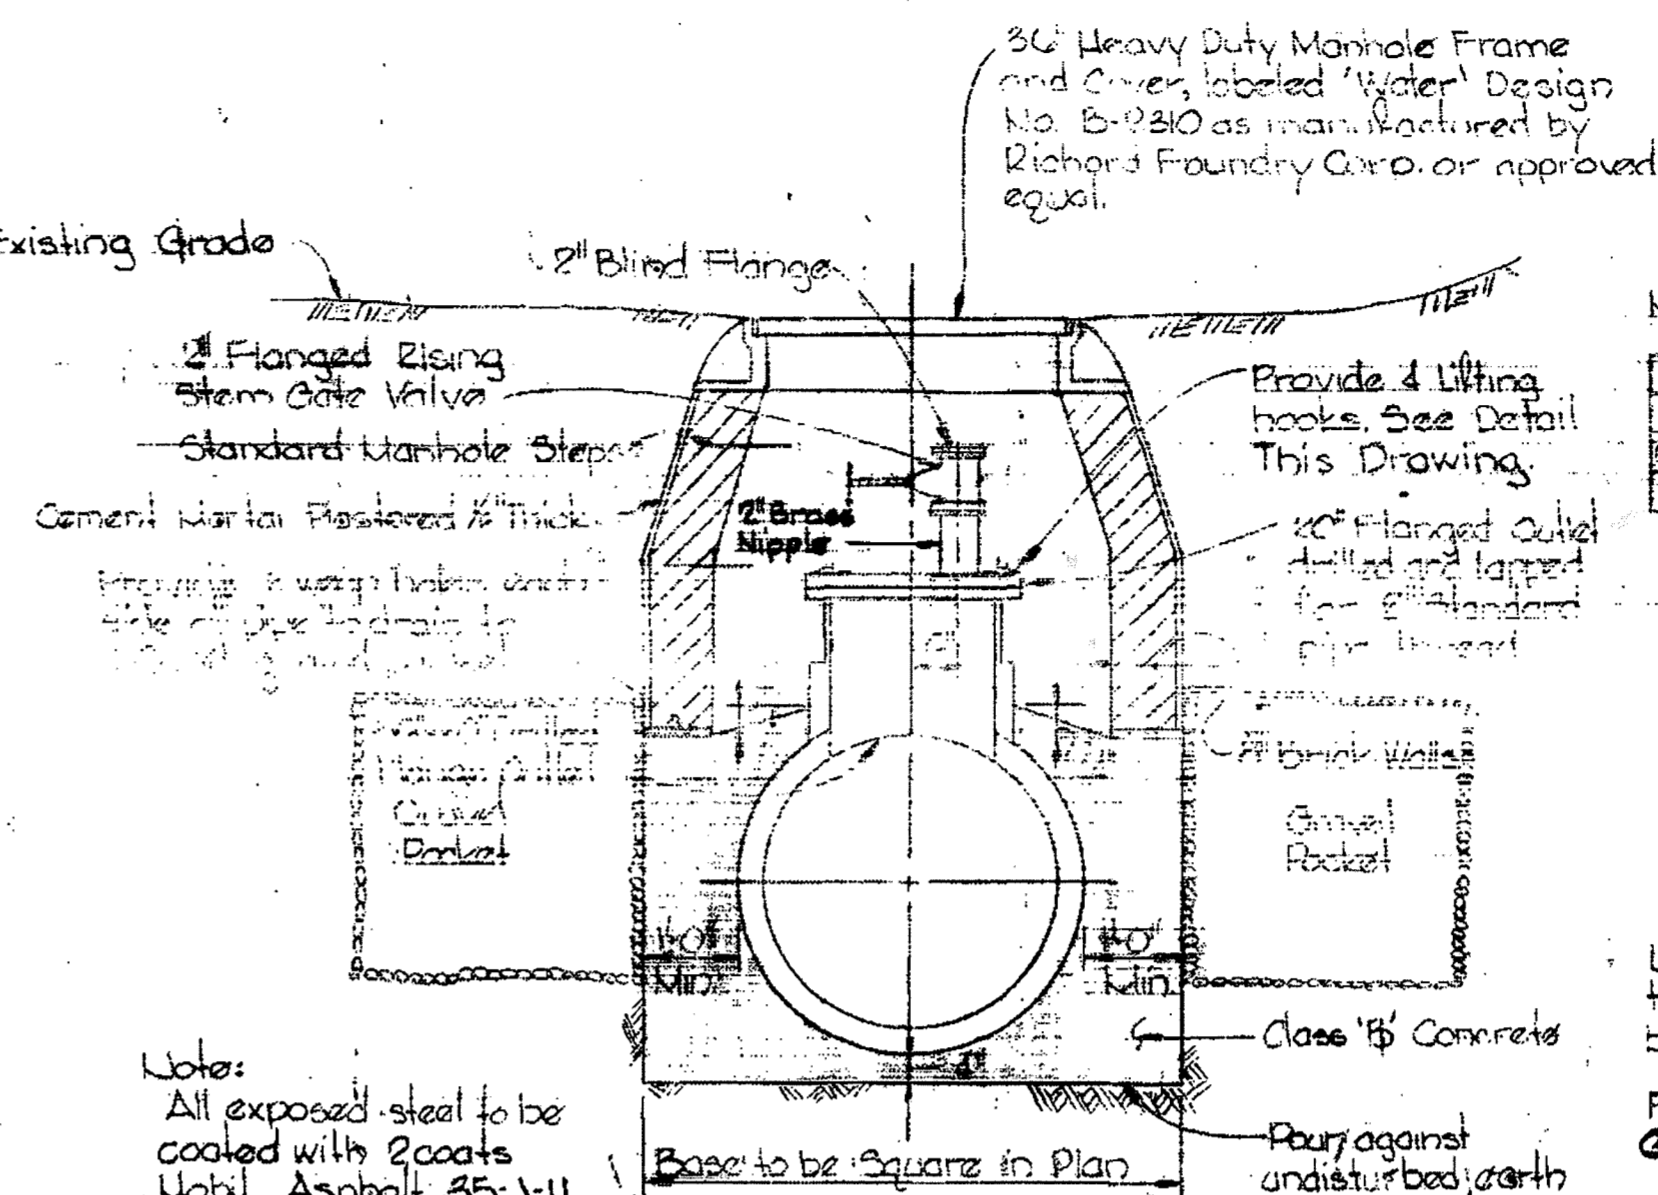 36" Heavy Duty Manhole Frame
and Cover, labeled 'Water' Design
No. B-9310 as manufactured by
Richard Foundry Corp. or approved
equal.
Existing Grade
2" Blind Flange
2" Flanged Rising
Stem Gate Valve
Standard Manhole Steps
Cement Mortar Plastered ½" Thick
2" Brass
Nipple
Provide 4 Lifting
hooks. See Detail
This Drawing.
20" Flanged Outlet
drilled and tapped
for 2" Standard
pipe thread
Provide weep holes each
side of pipe to drain to
Outlet
Gravel
Pocket
8" Brick Walls
Gravel
Pocket
1'-0"
Min.
1'-0"
Min.
Class 'B' Concrete
Note:
All exposed steel to be
coated with 2 coats
Mobil Asphalt
Base to be Square in Plan
Pour against
undisturbed earth